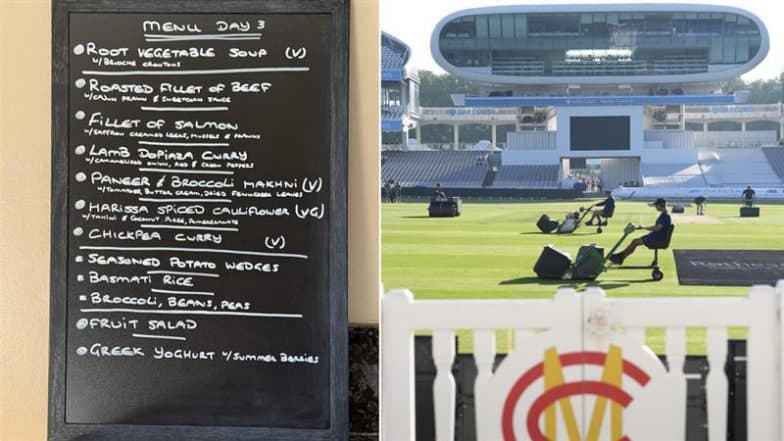 MENU DAY 3
ROOT VEGETABLE SOUP (V)
W/BRIOCHE CROUTONS
ROASTED FILLET OF BEEF
W/CAJUN PRAWN & SWEETCORN SAUCE
FILLET OF SALMON
W/SAFFRON CREAMED LEEKS, MUSSELS & PRAWNS
LAMB DOPIAZA CURRY
W/CARAMALISED ONION, RED & GREEN PEPPERS
PANEER & BROCCOLI MAKHNI (V)
W/TOMATOES, BUTTER CREAM, DRIED FENUGREEK LEAVES
HARISSA SPICED CAULIFLOWER (VG)
W/TAHINI & COCONUT PUREE, POMEGRANATE
CHICKPEA CURRY (V)
SEASONED POTATO WEDGES
BASMATI RICE
BROCCOLI, BEANS, PEAS
FRUIT SALAD
GREEK YOGHURT W/SUMMER BERRIES